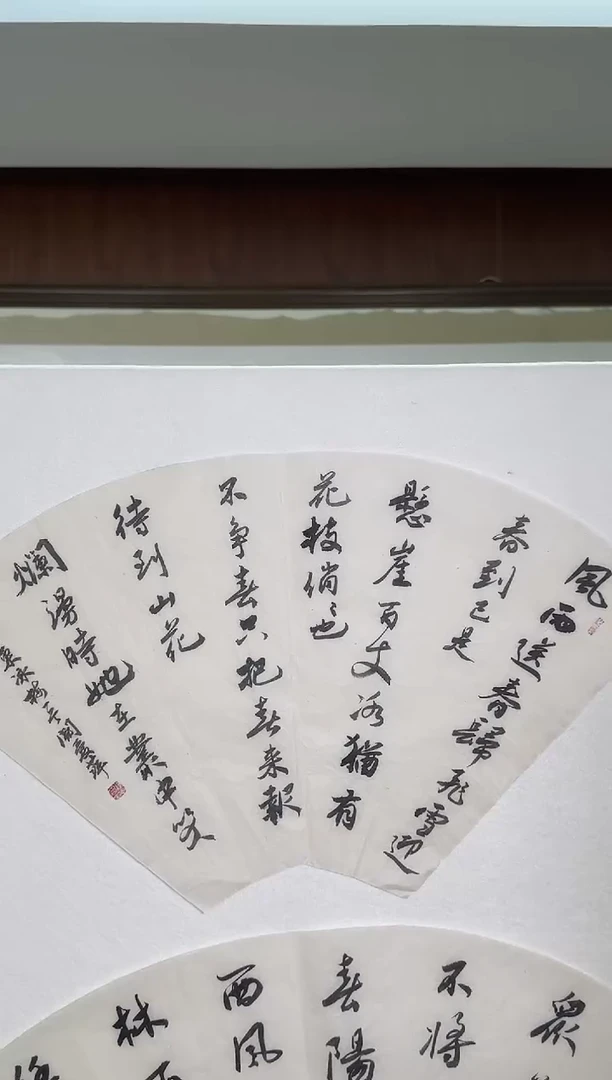 風雨送春歸飛雪迎
春到已是
懸崖百丈冰猶有
花枝俏俏也
不争春只把春来報
待到山花
爛漫時她在叢中笑
衆
不将
春陽
西風
林